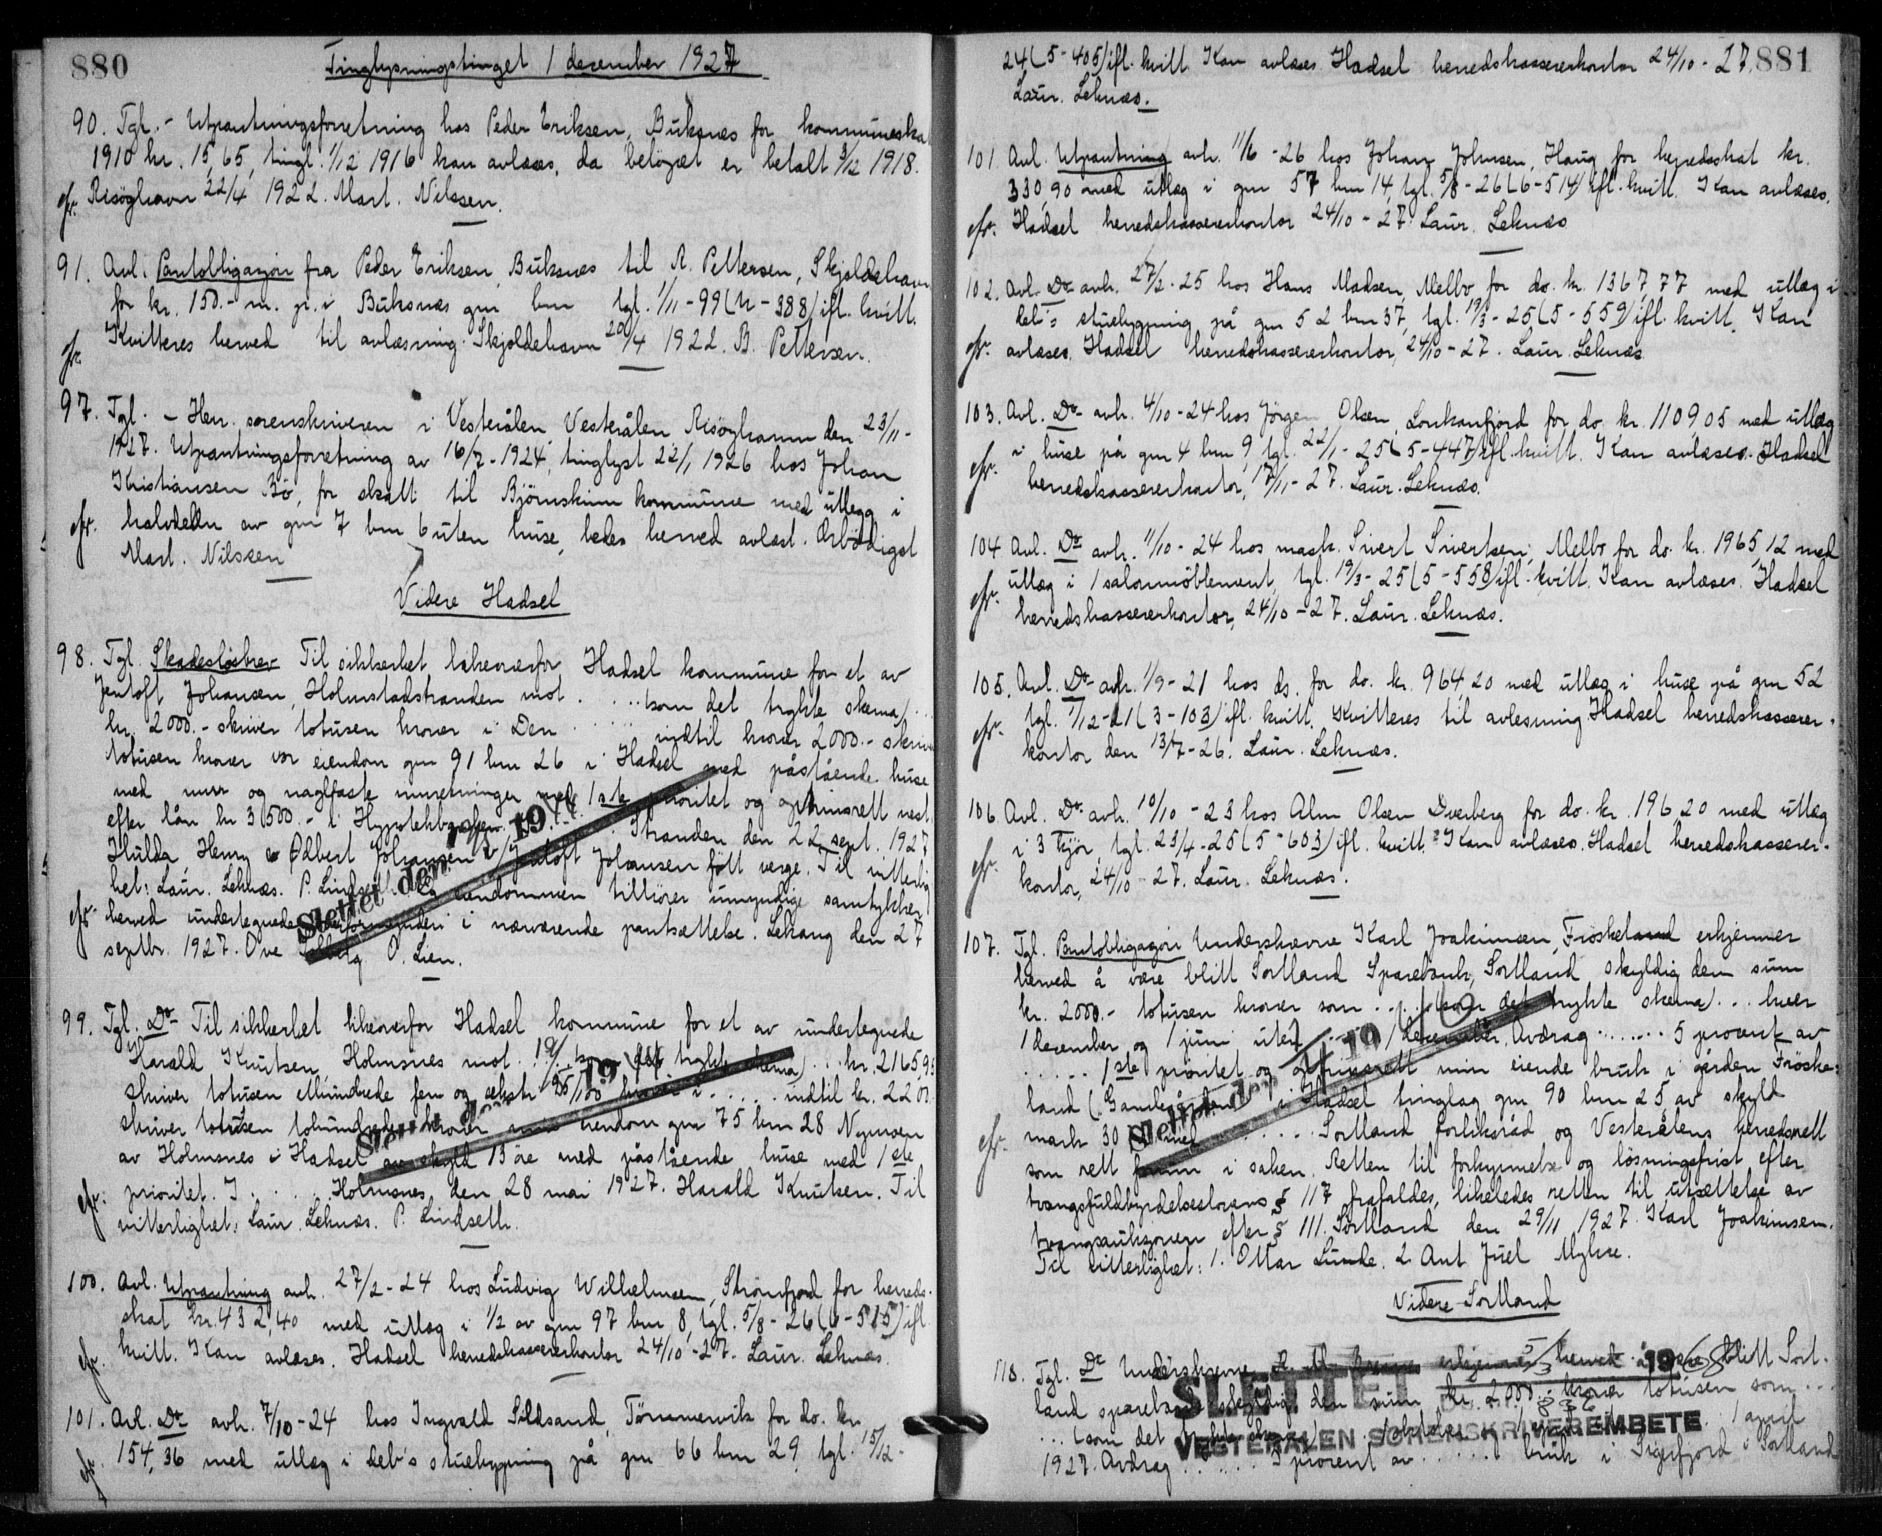 880
Tinglysningstinget 1 december 1927
90. Tgl. - Utpantningsforretning hos Peder Eriksen, Buksnes for kommuneska
1910 kr. 15,65, tingl. 1/12 1916 kan avlæses, da beløpet er betalt 3/12 1918.
Risøyhavn 22/4 1922. Mart. Nilssen.
91. Avl. Pantobligasjon fra Peder Eriksen, Buksnes til R. Pettersen, Skjoldehavn
for kr. 150.- m. p. i Buksnæs gnr bnr tgl. 1/11-99 (N-388) ifl. kvitt.
Kvitteres herved til avlæsning. Skjoldehavn 20/4 1922. B. Pettersen.
97. Tgl. - Herr sorenskriveren i Vesterålen Vesterålen Risøyhamn den 23/11-
1927. Utpantningsforretning av 16/7-1924, tinglyst 22/1 1926 hos Johan
Kristiansen Bø, for skatt til Bjørnskinn kommune med utlegg i
halvdelen av gnr 7 bnr 6 uten huse, bedes herved avlæst. Ærbødigst
Mart. Nilssen
Videre Hadsel
98. Tgl. Skadesløsbrev Til sikkerhet likeoverfor Hadsel kommune for et av
Jentoft Johansen, Holmstadstranden mot .... (som det trykte skema) ...
kr. 2000.- skriver totusen kroner i Den ..... indtil kroner 2000.- skriver
totusen kroner vor eiendom gnr 91 bnr 26 i Hadsel med påstående huse
med murr og naglfaste innretninger med 1ste prioritet og optrinsrett nest
efter lån kr 3500.- i Hypotekbanken ..... Stranden den 22 sept. 1927
Hulda, Henry & Odbert Johansen v/ Jentoft Johansen født verge. Til vitterlig
het: Laur. Leknæs. P. Lindseth. ... eiendommen tilhører umyndige samtykker
herved undertegnede overformynderi i nærværende pantsættelse. Lekang den 27
septbr. 1927. Ove Solberg O. Lien.
Slettet den 19
99. Tgl. Do - Til sikkerhet likeoverfor Hadsel kommune for et av undertegnede
Harald Knutsen, Holmsnes mot ... (som det trykte skema) ... kr. 2165,95
skriver totusen etthundrede fem og seksti 95/100 kroner i ..... indtil kr. 2200
skriver totusen tohundrede kroner min eiendom gnr 75 bnr 28 Nymoen
av Holmsnes i Hadsel av skyld 13 øre med påstående huse med 1ste
prioritet. I ..... Holmsnes den 28 mai 1927. Harald Knutsen. Til
vitterlighet: Laur. Leknæs. P. Lindseth.
Slettet den 19
100. Avl. Utpantning avh. 27/2-24 hos Ludvig Wilhelmsen, Strømfjord for herreds-
skat kr. 432,40 med utlæg i 1/2 av gnr 97 bnr 8, tgl. 5/8-26 (6-515) ifl.
kvitt. Kan avlæses. Hadsel herredskassererkontor 24/10-27. Laur. Leknæs.
101. Avl. Do avh. 7/10-24 hos Ingvald Sildsand, Tømmervik for do. kr.
154,36 med utlæg i deb's stuebygning på gnr 66 bnr 29, tgl. 15/12-
881
24 (5-405) ifl. kvitt. Kan avlæses. Hadsel herredskassererkontor 24/10-27.
Laur. Leknæs.
101. Avl. Utpantning avh. 11/6-26 hos Johan Johnsen, Haug for herredsskat kr.
330,90 med utlæg i gnr 57 bnr 14, tgl. 5/8-26 (6-514) ifl. kvitt. Kan avlæses.
Hadsel herredskassererkontor 24/10-27. Laur. Leknæs
102. Avl. Do avh. 27/2-25 hos Hans Madsen, Melbo for do. kr. 1367,77 med utlæg i
deb's stuebygning på gnr 52 bnr 37, tgl. 19/3-25 (5-559) ifl. kvitt. Kan
avlæses. Hadsel herredskassererkontor, 24/10-27. Laur. Leknæs
103. Avl. Do avh. 4/10-24 hos Jørgen Olsen, Lonkanfjord for do. kr. 1109,05 med utlæg
i huse på gnr 4 bnr 9, tgl. 22/1-25 (5-447) ifl. kvitt. Kan avlæses. Hadsel
herredskassererkontor, 17/11-27. Laur. Leknæs.
104. Avl. Do avh. 11/10-24 hos mask. Sivert Sivertsen, Melbo for do. kr. 1965,12 med
utlæg i 1 salonmøblement, tgl. 19/3-25 (5-558) ifl. kvitt. Kan avlæses. Hadsel
herredskassererkontor, 24/10-27. Laur. Leknæs.
105. Avl. Do avh. 1/9-21 hos ds. for do. kr. 964,20 med utlæg i huse på gnr 52
tgl. 1/12-21 (3-103) ifl. kvitt. Kvitteres til avlesning Hadsel herredskasserer-
kontor den 13/7-26. Laur. Leknæs.
106. Avl. Do avh. 10/10-23 hos Alm Olsen Dverberg for do. kr. 196,20 med utlæg
i 3 kjør, tgl. 23/4-25 (5-603) ifl. kvitt. Kan avlæses. Hadsel herredskasserer-
kontor, 24/10-27. Laur. Leknæs.
107. Tgl. Pantobligasjon Underskrevne Karl Joakimsen, Frøskeland erkjenner
herved å være blitt Sortland Sparebank, Sortland skyldig den sum
kr. 2000.- totusen kroner som .... (som det trykte skema) ... hver
1 december og 1 juni uten ... 1 december. Avdrag ...... 5 procent av
..... 1ste prioritet og optrinsrett min eiende bruk i gården Frøske-
land (Gamlegården) i Hadsel tinglag gnr 90 bnr 25 av skyld
mark 30 ... med ....... Sortland forliksråd og Vesterålens herredsrett
som rett forum i saken. Retten til forkynnelse og løsningsfrist efter
tvangsfuldbyrdelseslovens § 117 frafaldes, likeledes retten til utsættelse av
tvangsauksjonen efter § 111. Sortland den 29/11 1927. Karl Joakimsen.
Til vitterlighet: 1. Ottar Lunde. 2. Ant. Juel Myhre.
Slettet den 19
Videre Sortland
118. Tgl. Do Underskrevne ... erkjenner herved å være blitt Sort-
land sparebank skyldig den sum kr. 2000.- kroner totusen som ...
... (som det trykte skema) ... oktober ... 1 april
1927. Avdrag ...... 5 procent av ...... bruk i Sigerfjord i Sortland
SLETTET 19
VESTERÅLEN SORENSKRIVEREMBETE